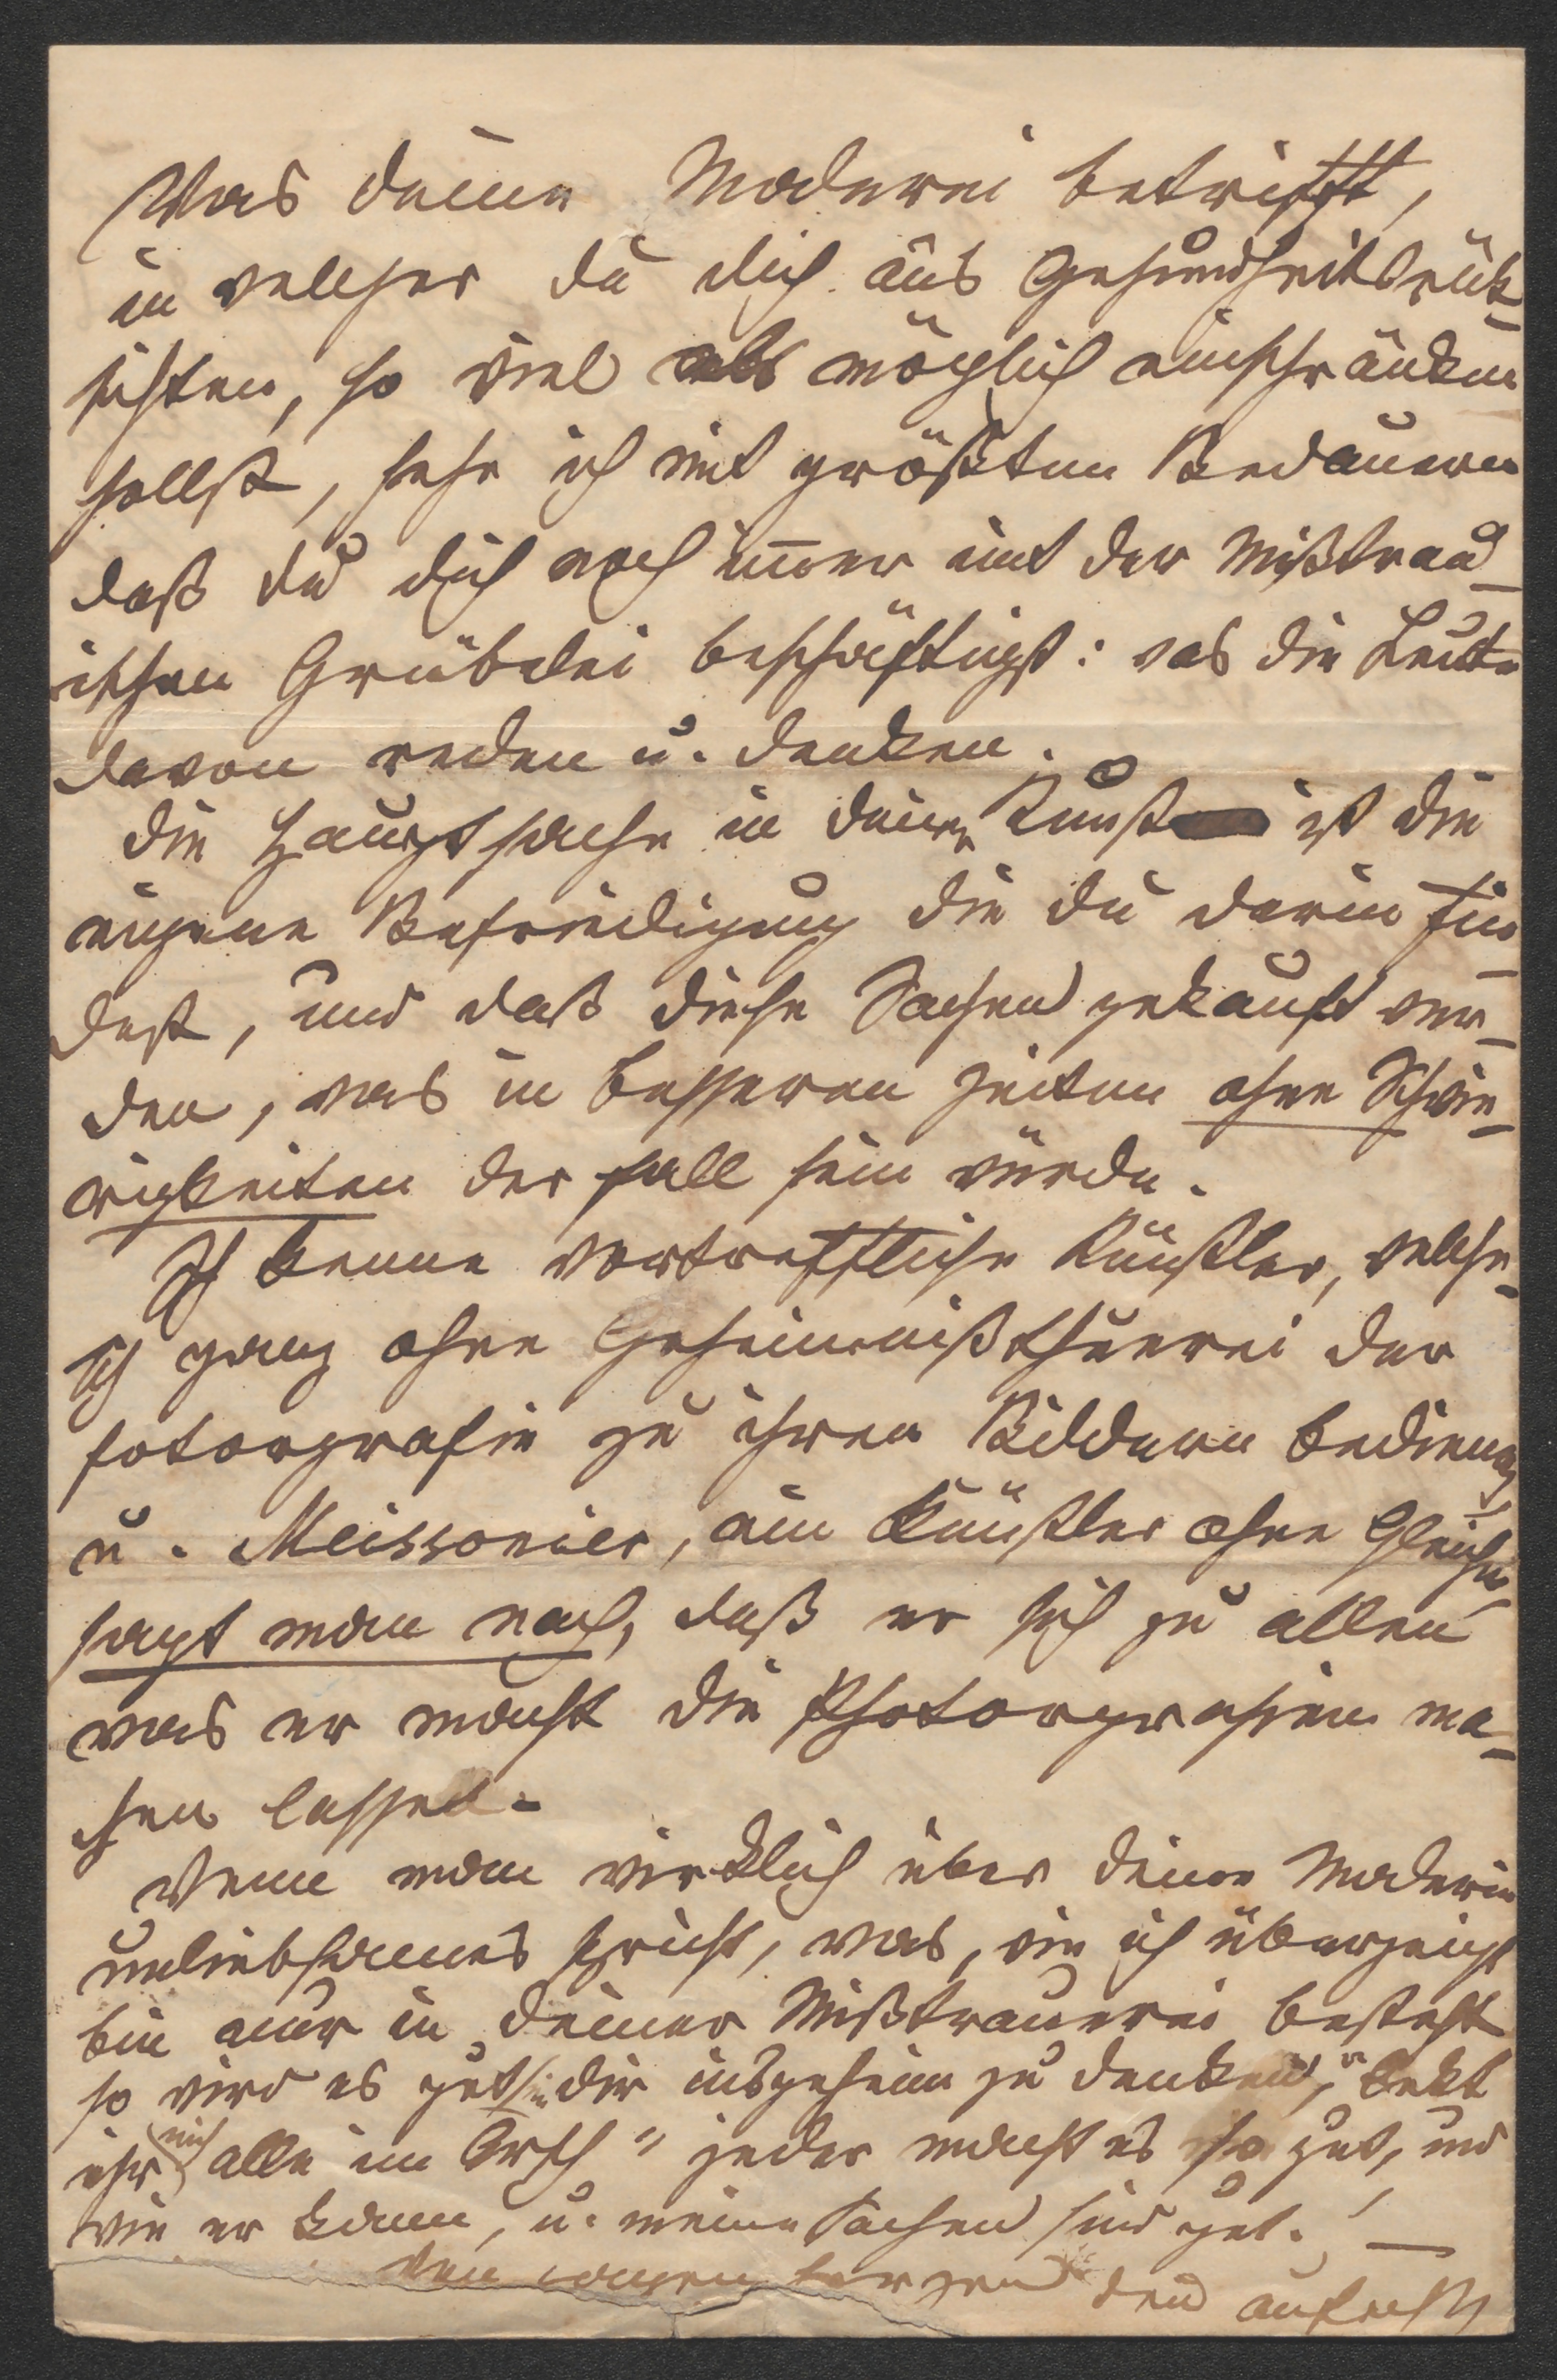 Was deine Malerei betrifft,
in welcher du dich aus Gesundheitsrük-
sichten, so viel als möglich einschränken
sollst, sehe ich mit größtem Bedauern
daß du dich noch im̅er mit der Mißtrau-
ischen Grübelei beschäftigst: was die Leute
davon reden u. denken.
Die Hauptsache in deiner Kunst ist die
eigene Befriedigung die du darin fin-
dest, und daß diese Sachen gekauft wer-
den, was in besseren Zeiten ohne Schwie-
rigkeiten der Fall sein würde.
Ich kenne vortreffliche Künstler, welche
sich ganz ohne Geheimnißthuerei der
Fotografie zu ihren Bildern bedienen,
u. Meissonier, ein Künstler ohne Gleichen
sagt man nach, daß er sich zu allem
was er macht die Photografien ma-
chen lassen.
Wenn man wirklich über deine Malerei
unliebsames spricht, was, wie ich überzeugt
bin nur in deiner Mißtrauerei besteht
so wird es gut sein dir insgeheim zu denken, "lekt
ihr mich alle im Arsch" jeder macht es so gut, und
wie er kann, u. meine Sachen sind gut.! —
den